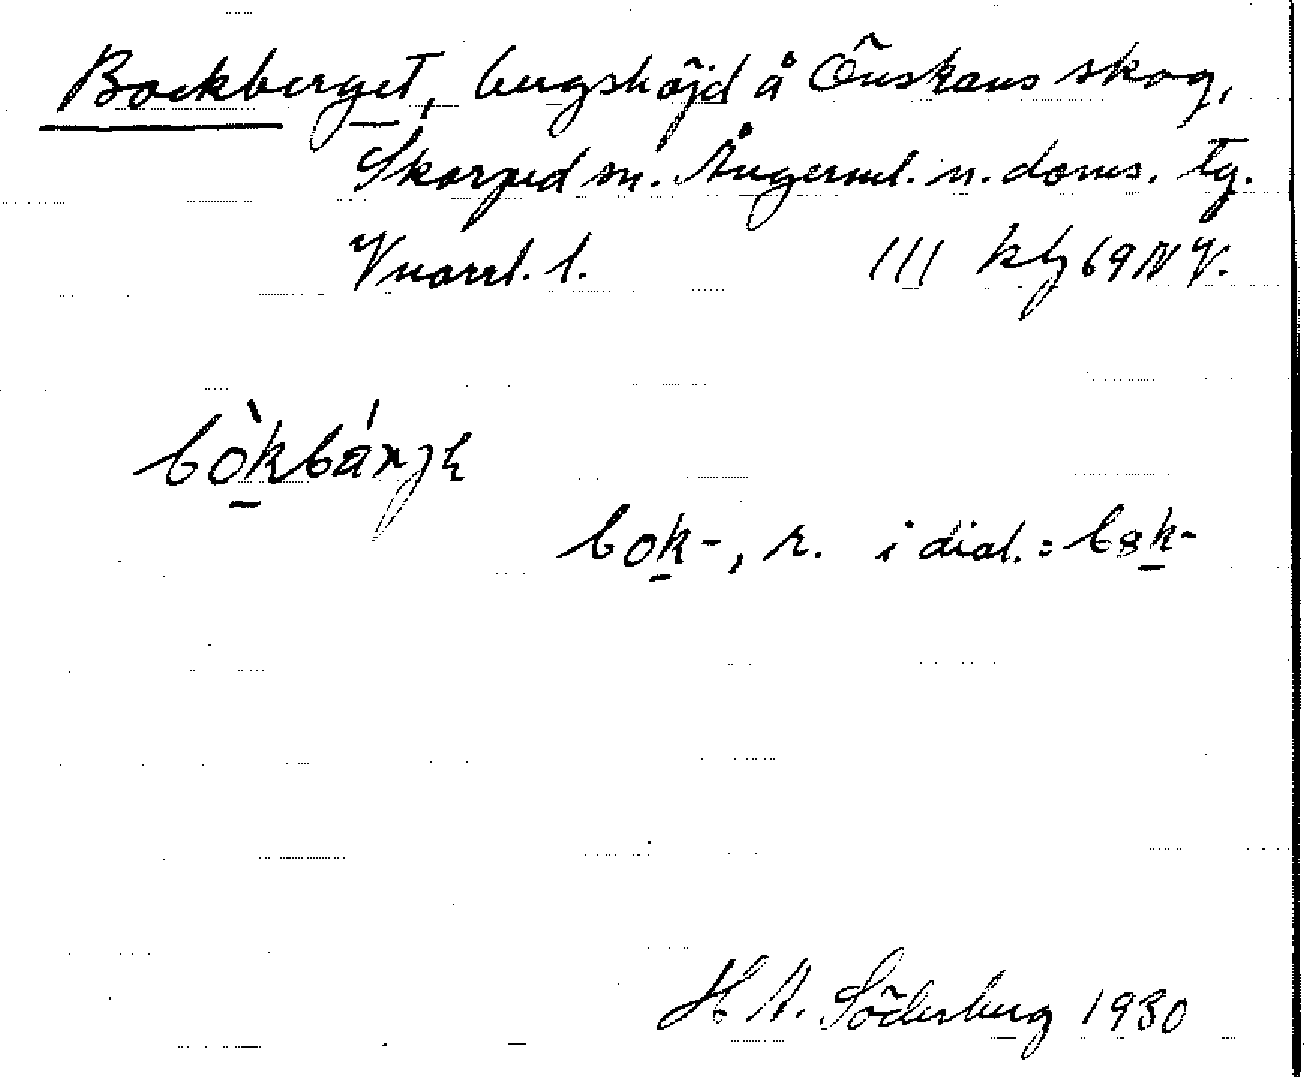 Bockberget, bergshöjd å Önskans skog,
Skorped sn. Ångerml. n. doms. tg.
Vnorrl. l. III kbl 69 NV.
bòkbárjɛ
bok-, r. i dial. = bok-
H A. Söderberg 1930